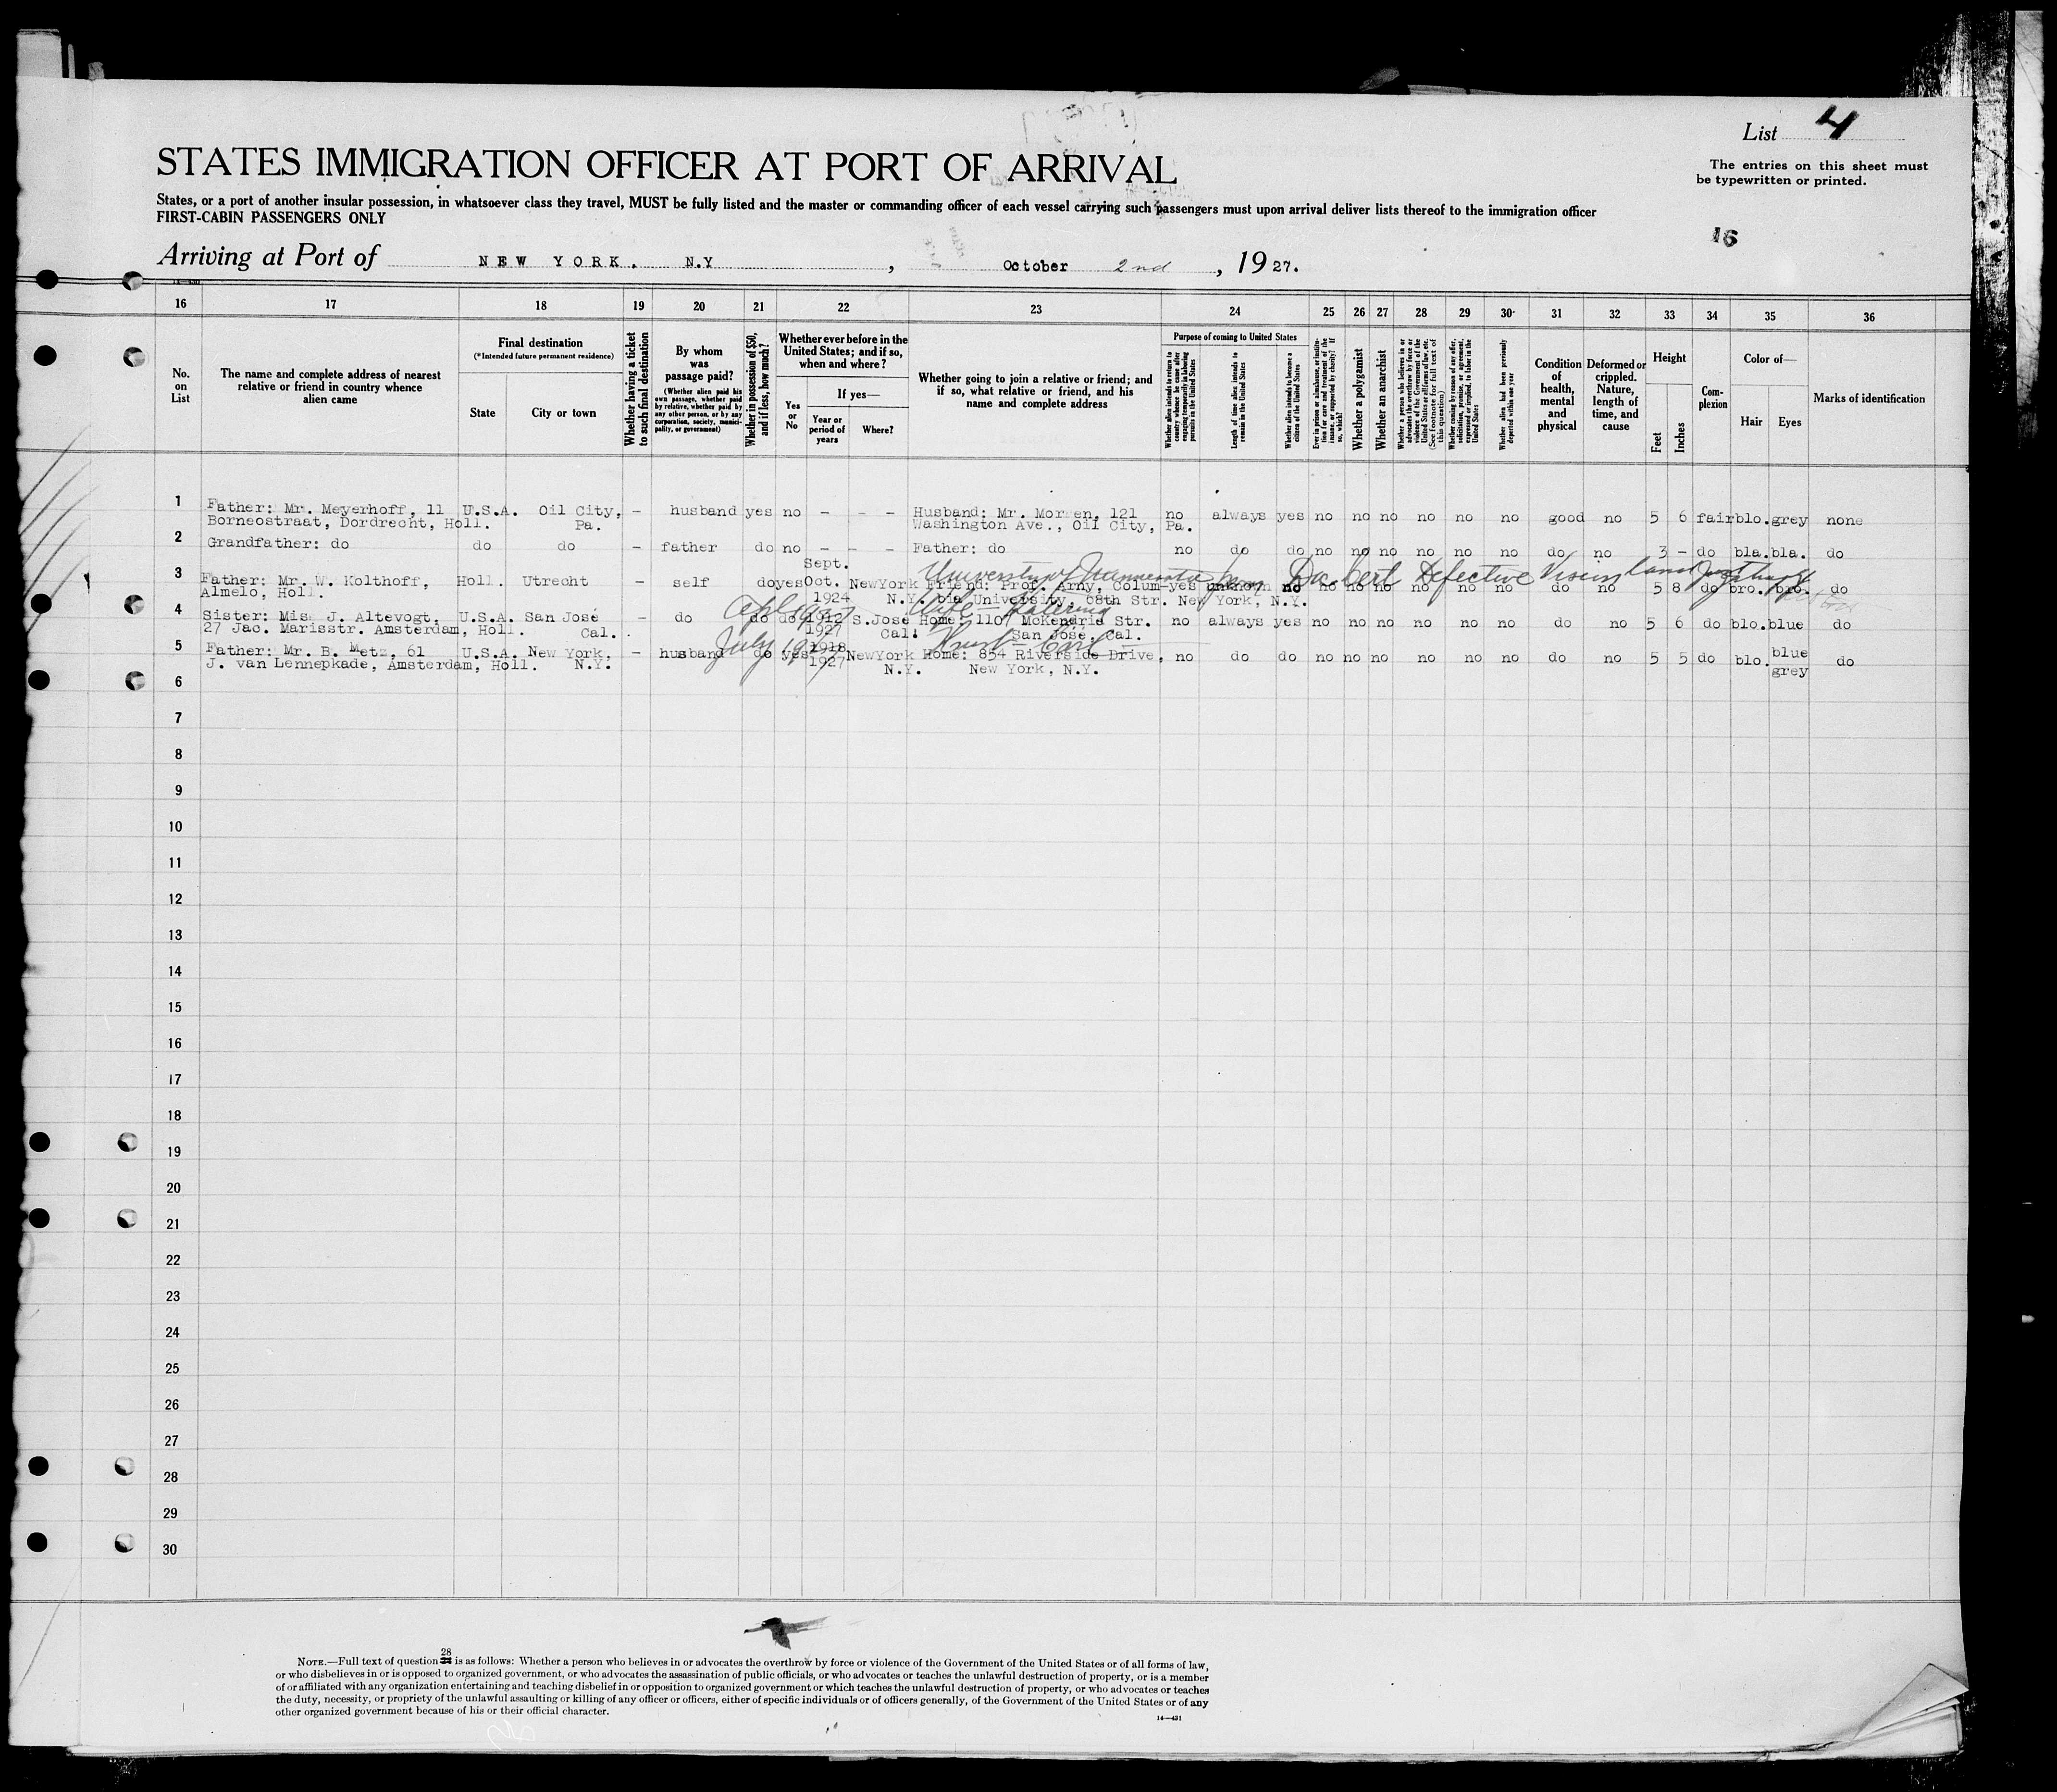 List 4
The entries on this sheet must
be typewritten or printed.
STATES IMMIGRATION OFFICER AT PORT OF ARRIVAL
States, or a port of another insular possession, in whatsoever class they travel, MUST be fully listed and the master or commanding officer of each vessel carrying such passengers must upon arrival deliver lists thereof to the immigration officer
FIRST-CABIN PASSENGERS ONLY
16
Arriving at Port of NEW YORK. N.Y , October 2nd , 1927.
16 17 18 19 20 21 22 23 24 25 26 27 28 29 30 31 32 33 34 35 36
No. on List
The name and complete address of nearest relative or friend in country whence alien came
Final destination
(*Intended future permanent residence)
State
City or town
Whether having a ticket to such final destination
By whom was passage paid?
(Whether alien paid his own passage, whether paid by relative, whether paid by any other person, or by any corporation, society, municipality, or government)
Whether in possession of $50, and if less, how much?
Whether ever before in the United States; and if so, when and where?
Yes or No
If yes—
Year or period of years
Where?
Whether going to join a relative or friend; and if so, what relative or friend, and his name and complete address
Purpose of coming to United States
Whether alien intends to return to country whence he came after engaging temporarily in laboring pursuits in the United States
Length of time alien intends to remain in the United States
Whether alien intends to become a citizen of the United States
Ever in prison or almshouse, or institution for care and treatment of the insane, or supported by charity? If so, which?
Whether a polygamist
Whether an anarchist
Whether a person who believes in or advocates the overthrow by force or violence of the Government of the United States or all forms of law, etc. (See footnote for full text of this question)
Whether coming by reason of any offer, solicitation, promise, or agreement, expressed or implied, to labor in the United States
Whether alien had been previously deported within one year
Condition of health, mental and physical
Deformed or crippled. Nature, length of time, and cause
Height
Feet
Inches
Complexion
Color of—
Hair
Eyes
Marks of identification
1 Father: Mr. Meyerhoff, 11 U.S.A. Oil City, - husband yes no - - - Husband: Mr. Morren, 121 no always yes no no no no no no good no 5 6 fair blo. grey none
Borneostraat, Dordrecht, Holl. Pa. Washington Ave., Oil City, Pa.
2 Grandfather: do do do - father do no - - - Father: do no do do no no no no no no do no 3 - do bla. bla. do
Sept.
University of Defective Vision
3 Father: Mr. W. Kolthoff, Holl. Utrecht - self do yes Oct. NewYork Friend: Prof. Arny, Colum- yes unknown no no no no no no no do no 5 8 do bro. bro. do
Almelo, Holl. 1924 N.Y. bia University, 68th Str. New York, N.Y.
Wife
4 Sister: Mis J. Altevogt, U.S.A. San José - do do do 1912 S.José Home: 110 McKendrie Str. no always yes no no no no no no do no 5 6 do blo. blue do
27 Jac. Marisstr. Amsterdam, Holl. Cal. 1927 Cal. San José, Cal.
July 1927
5 Father: Mr. B. Metz, 61 U.S.A. New York, - husband do yes 1918 NewYork Home: 854 Riverside Drive, no do do no no no no no no do no 5 5 do blo. blue do
J. van Lennepkade, Amsterdam, Holl. N.Y. 1927 N.Y. New York, N.Y. grey
6
7
8
9
10
11
12
13
14
15
16
17
18
19
20
21
22
23
24
25
26
27
28
29
30
28
NOTE.—Full text of question is as follows: Whether a person who believes in or advocates the overthrow by force or violence of the Government of the United States or of all forms of law,
or who disbelieves in or is opposed to organized government, or who advocates the assassination of public officials, or who advocates or teaches the unlawful destruction of property, or is a member
of or affiliated with any organization entertaining and teaching disbelief in or opposition to organized government or which teaches the unlawful destruction of property, or who advocates or teaches
the duty, necessity, or propriety of the unlawful assaulting or killing of any officer or officers, either of specific individuals or of officers generally, of the Government of the United States or of any
other organized government because of his or their official character.
14—431